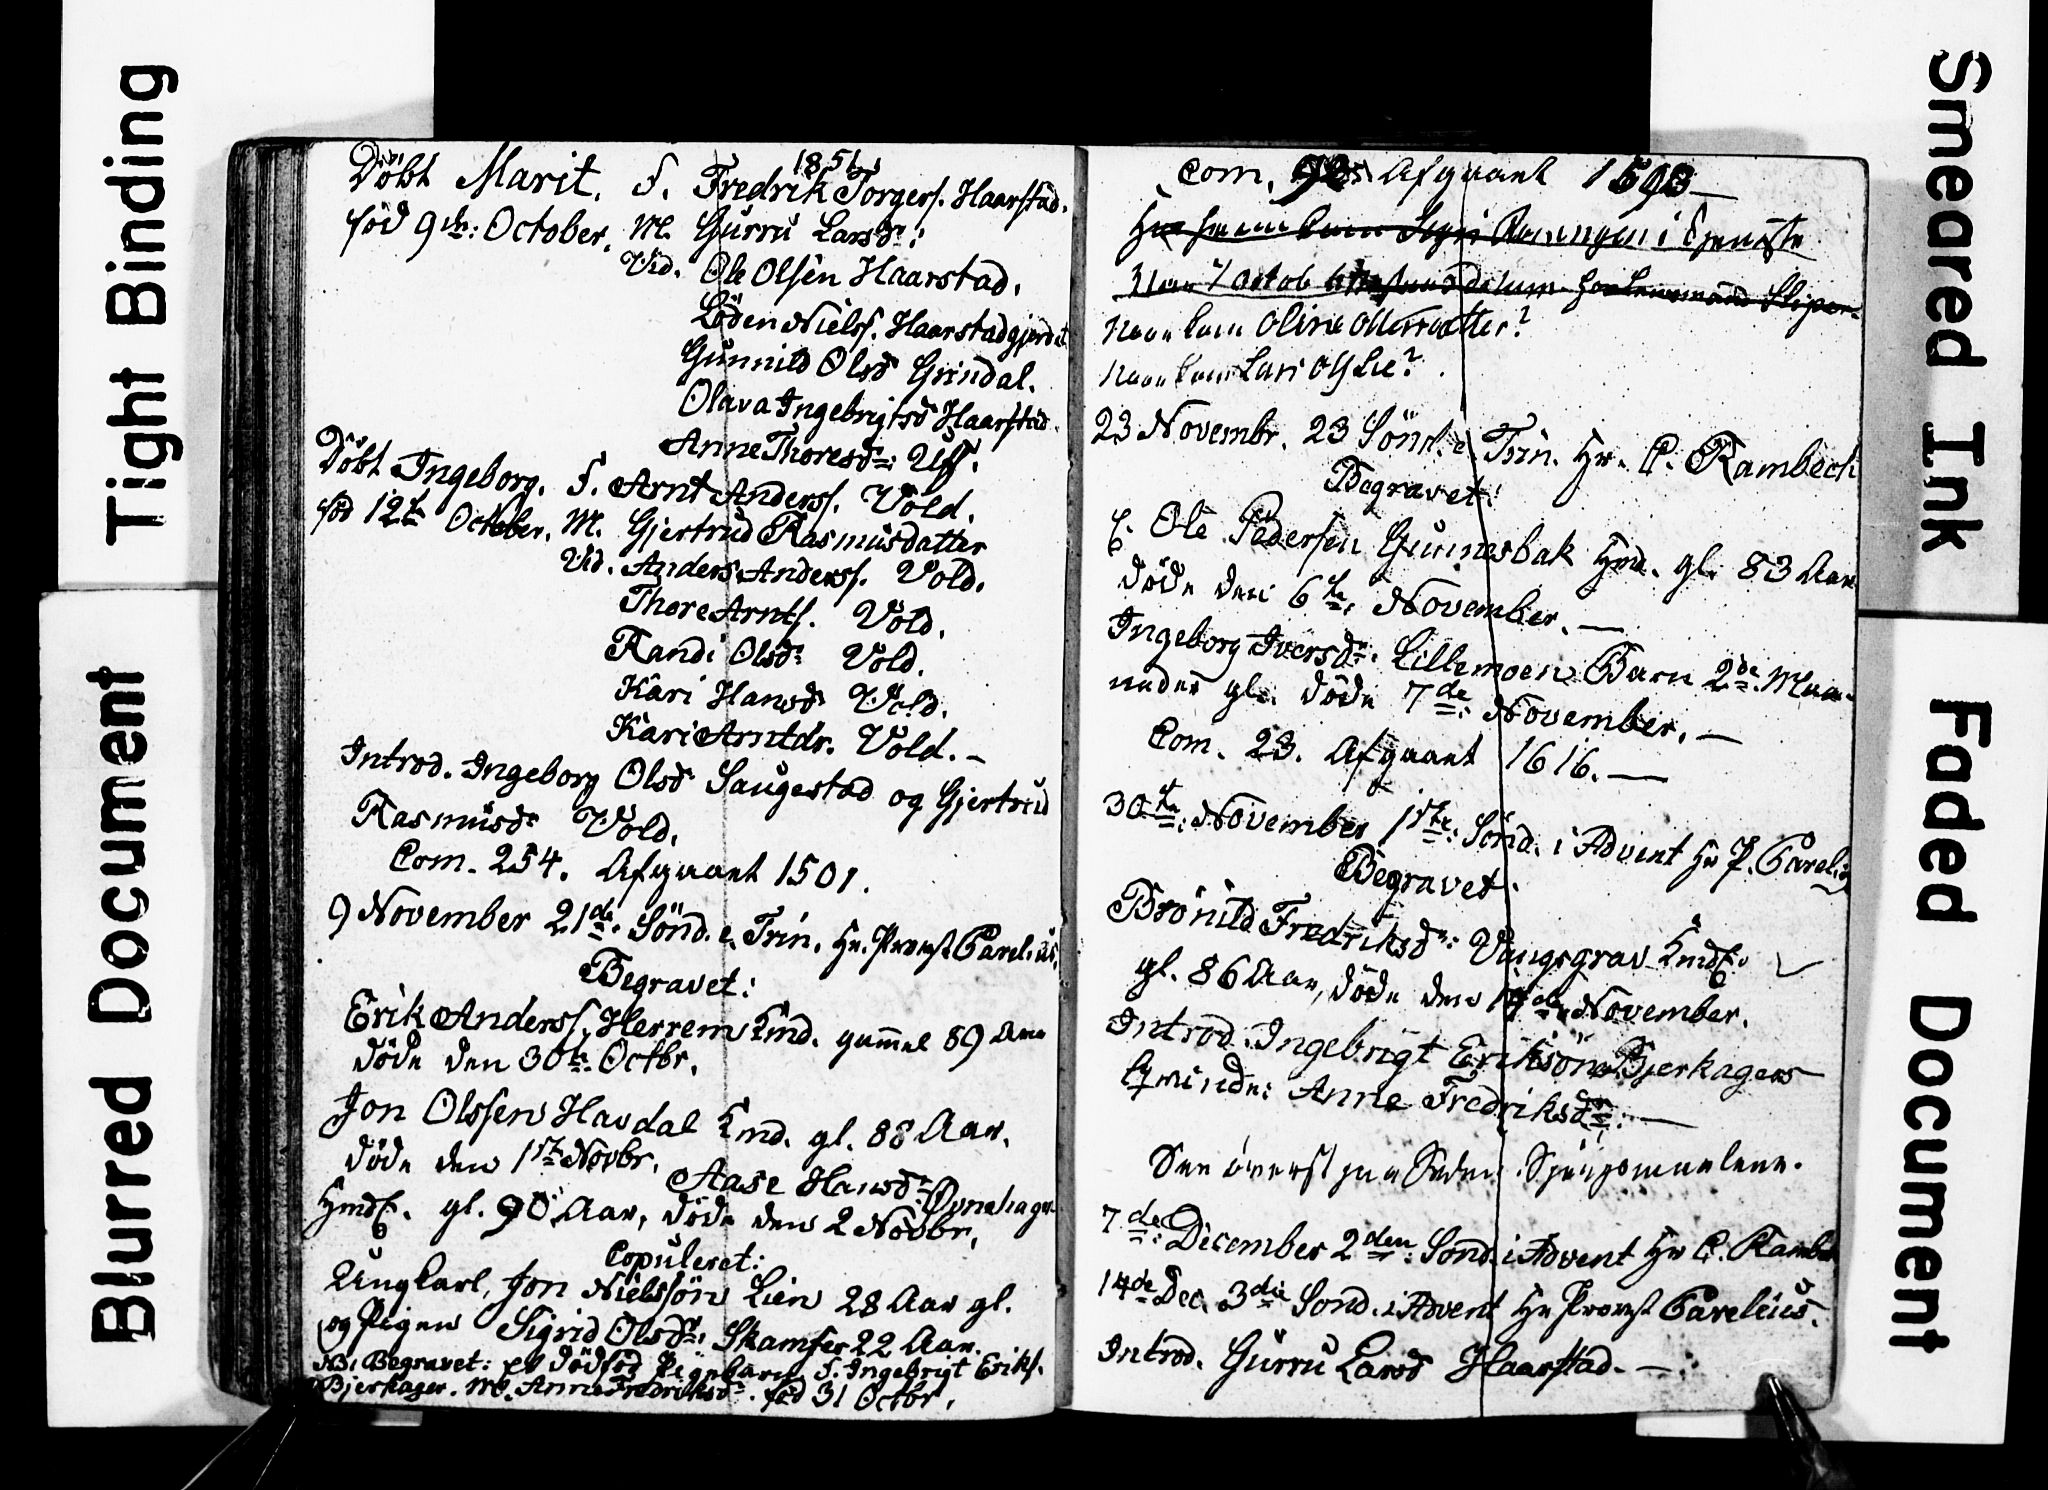 1851.
Döbt Marit. F. Fredrik Torgers. Haarstad.
föd 9de: October. M. Gurru Larsdr:
Vid. Ole Olsen Haarstad.
Löden Niels. Haarstadgjerdet
Gunnild Olsd Grindal.
Olava Ingebrigtsd Haarstad.
Anne Thoresdr: Uff.
Döbt Ingeborg. F. Arnt Anderss. Vold.
föd 12te October. M. Gjertrud Rasmusdatter
Vid. Anders Anderss. Vold.
Thore Arnts. Vold.
Randi Olsdr Vold.
Kari Hansdr Vold.
Kari Arntdr. Vold. –
Introd. Ingeborg Olsd Saugestad og Gjertrud
Rasmusdr Vold.
Com. 254. Afgaaet 1501.
9 November 21de. Sönd. e. Trin. Hr. Provst Parelius.
Begravet:
Erik Anderss. Herrem Kmd. gammel 89 Aar
döde den 30te Octbr.
Jon Olssen Havdal Kmd. gl. 88 Aar.
döde den 1ste Novbr. Aase Hansdr:
Hmdk. gl. 90 Aar, döde den 2 Novbr.
Copuleret:
Ungkarl, Jon Nielssön Lien 28 Aar gl.
og Pigen Sigrid Olsdr: Skamfer 22 Aar.
NB: Begravet: et dödföd Pigebarn F. Ingebrigt Eriks.
Bjerkager. M. Anne Fredriksdr. föd 31 Octbr.
Com. Afgaaet
i Tjeneste
Octob
Naar kom Oline
Naar kom Lars Ols Lie?
23 Novembr. 23 Sönd. e. Trin. Hr. C. Rambech
Begravet:
E. Ole Pedersen Gunnesbak Hmd. gl. 83 Aar
döde den 6te. November. —
Ingeborg Iversdr. Lillemoen Barn 2de Maa-
neder gl. döde 7de: November. —
Com. 23. Afgaaet 1616. —
30te: November 1ste: Sönd. i Advent Hr P. Parelius
Begravet.
Brönild Fredriksdr: Vangsgrav Kmdk.
gl. 86 Aar, döde den November.
Introd. Ingebrigt Eriksön Bjerkagers
Qvinde: Anne Fredriksdr: —
See överst paa Siden. Spörgsmaalene.
7de: December 2den: Sönd. i Advent Hr C. Rambe
14de Dec. 3die Sond. i Advent Hr Provst Parelius.
Introd. Gurru Larsd Haarstad. —
Tight Binding
Blurred Document
Smeared Ink
Faded Document